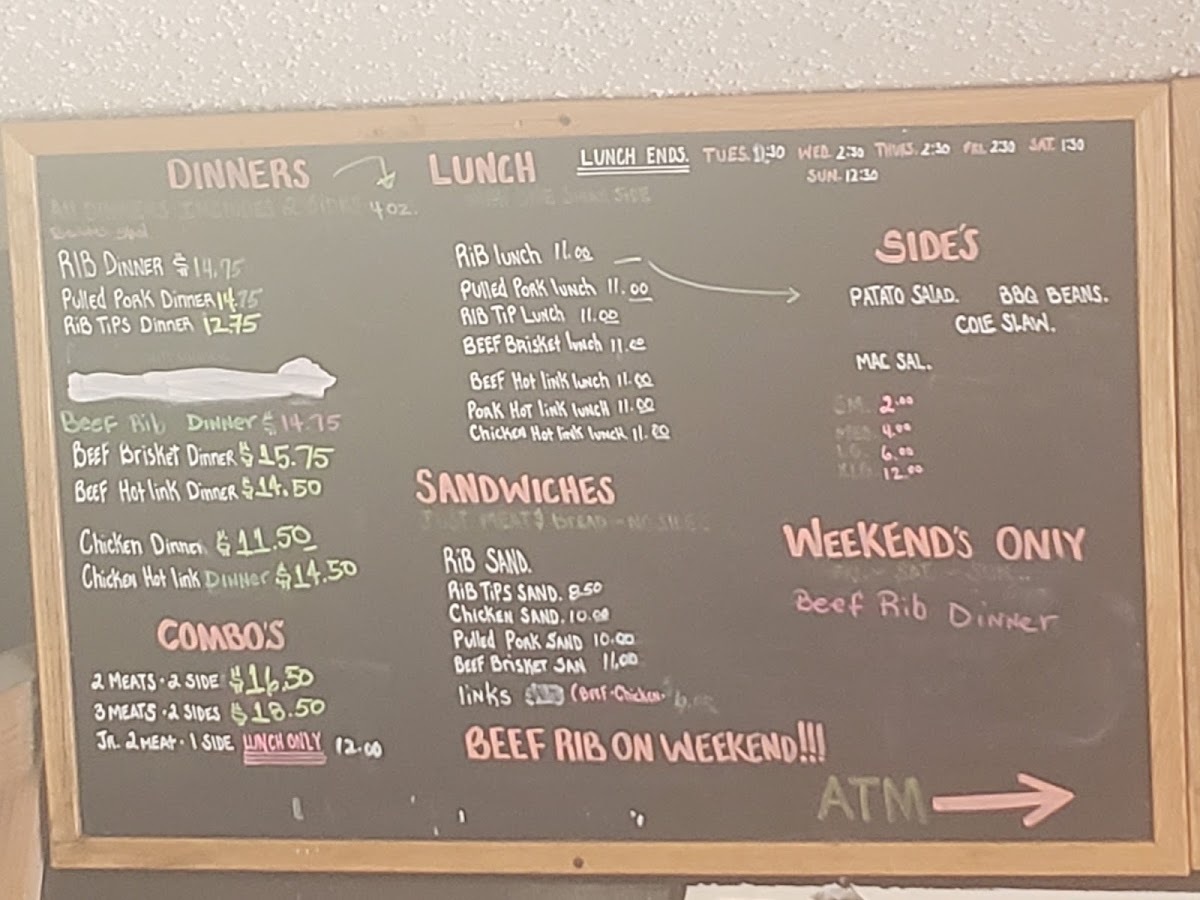 DINNERS
All DINNERS INCLUDES 2 SIDES 4 OZ.
RIB DINNER $14.75
Pulled Pork Dinner 14.75
RiB TiPS Dinner 12.75
Beef Rib DINNER $14.75
BEEF BRISKET DINNER $15.75
BEEF Hot link DINNER $14.50
Chicken Dinner $11.50
Chicken Hot link DINNER $14.50
COMBO'S
2 MEATS · 2 SIDE $16.50
3 MEATS · 2 SIDES $18.50
Jr. 2 MEAT · 1 SIDE LUNCH ONLY 12.00
LUNCH
SIDE
RiB lunch 11.00
Pulled Pork lunch 11.00
RIB TiP LUNCH 11.00
BEEF BRisket lunch 11.00
BEEF Hot link lunch 11.00
Pork Hot link lunch 11.00
Chicken Hot link lunch 11.00
SANDWICHES
JUST MEAT $ BREAD - NO SIDE
RiB SAND.
RiB TiPS SAND. 8.50
Chicken SAND. 10.00
Pulled Pork SAND 10.00
BEEF BRiSKET SAN 11.00
links (BEEF · Chicken ·
BEEF RIB ON WEEKEND!!!
LUNCH ENDS. TUES. WED. 2:30 THURS. 2:30 FRI. 2:30 SAT. 1:30
SUN. 12:30
SIDE'S
PATATO SALAD. BBQ BEANS.
COLE SLAW.
MAC SAL.
SM. 2.00
MED. 4.00
LG. 6.00
XLG 12.00
WEEKEND'S ONlY
FRI. - SAT - SUN..
Beef Rib Dinner
ATM